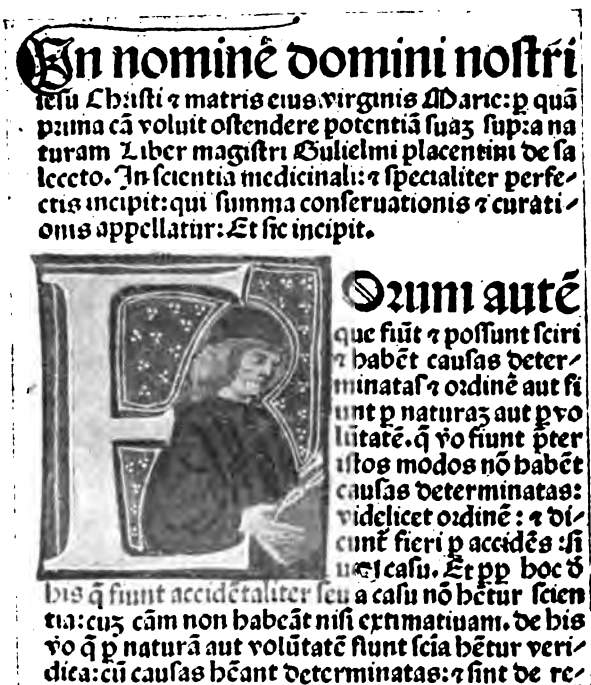 In nominē domini noſtri
ieſu Chriſti ⁊ matris eius virginis Marie: ꝑ quā
prima cā voluit oſtendere potentiā ſuaꝫ ſupra na
turam Liber magiſtri Gulielmi placentini de ſa
leceto. In ſcientia medicinali: ⁊ ſpecialiter perfe⸗
ctis incipit: qui ſumma conſeruationis ⁊ curati⸗
onis appellatur: Et ſic incipit.
EOrum autē
que fiūt ⁊ poſſunt ſciri
⁊ habēt cauſas deter⸗
minataſ ⁊ ordinē aut fi
unt ꝑ naturaꝫ aut ꝑ vo
lūtatē. q̄ vo fiunt p̄ter
iſtos modos nō habēt
cauſas determinatas:
videlicet ordinē: ⁊ di⸗
cunt̄ fieri ꝑ accidēs: ſi
caſu. Et ꝓp hoc d̄
his q̄ fiunt accidētaliter ſeu a caſu nō hētur ſcien
tia: cuꝫ cām non habeāt niſi extimatiuam. de his
vo q̄ ꝑ naturā aut volūtatē fiunt ſcīa hētur veri
dica: cū cauſas hēant determinatas: ⁊ ſint de re⸗